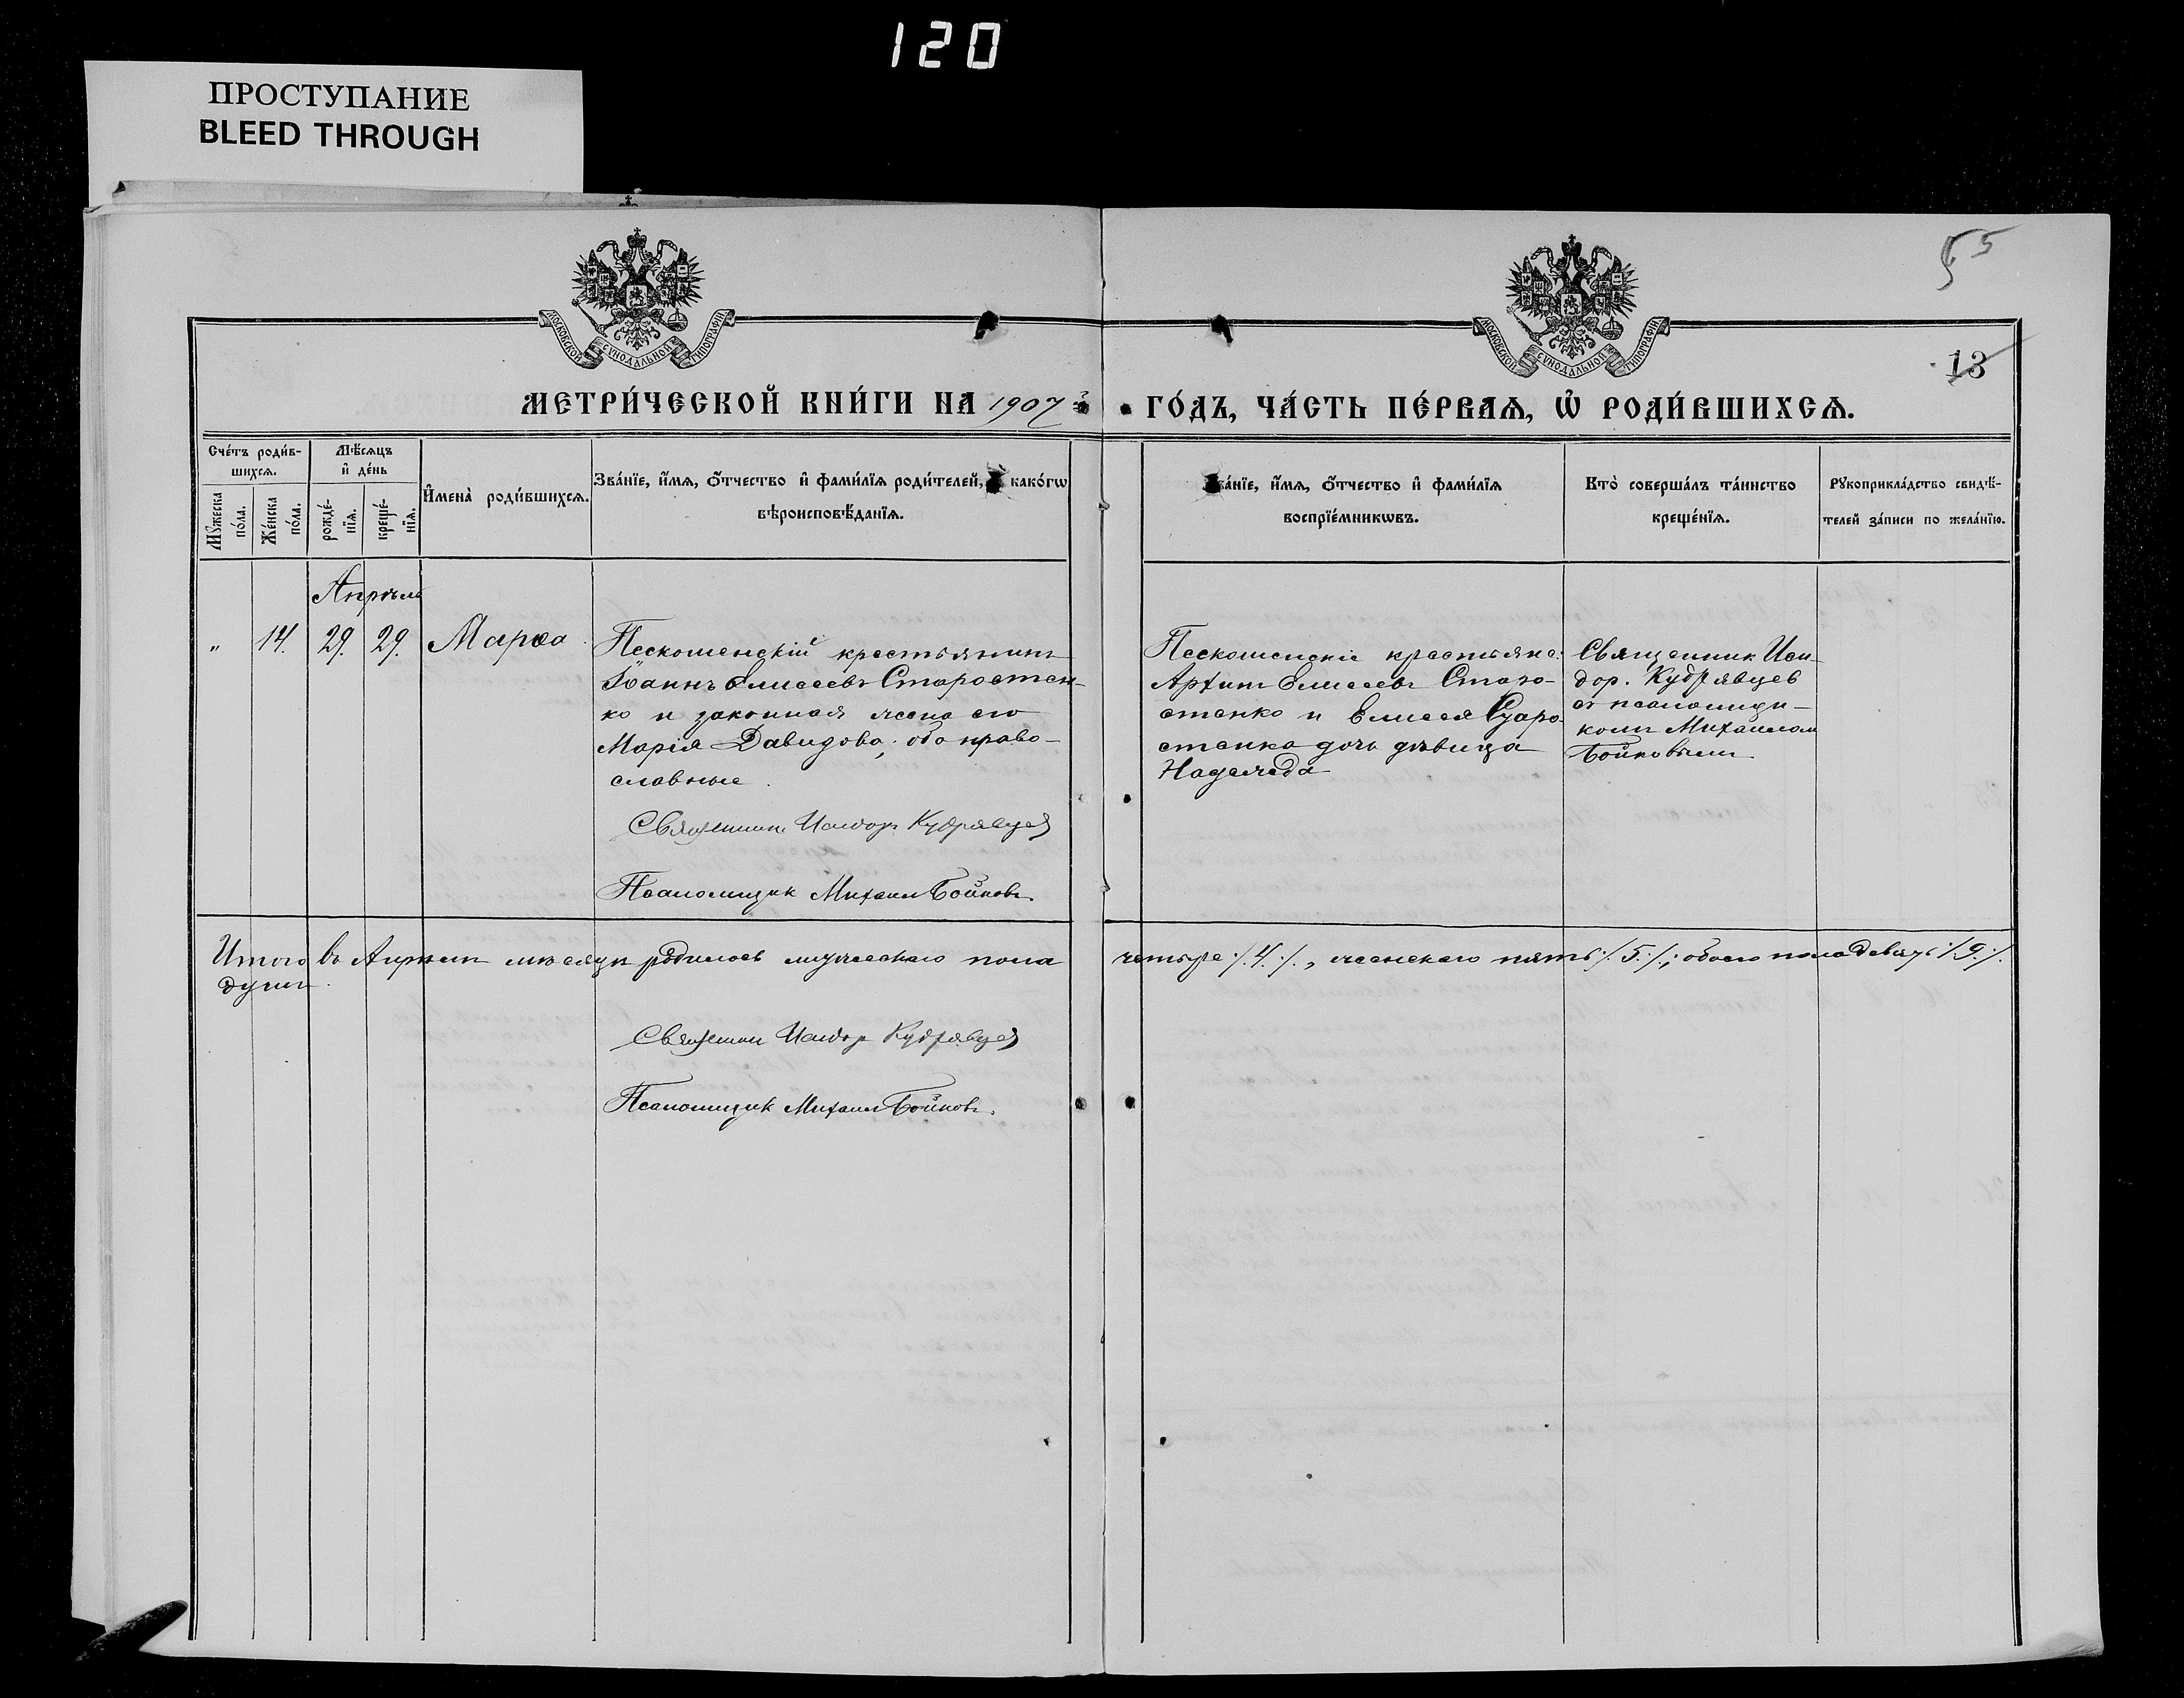 120
ПРОСТУПАНИЕ
BLEED THROUGH
55
МОСКОВСКОЙ СѴНОДАЛЬНОЙ ТИПОГРАФІИ
МОСКОВСКОЙ СѴНОДАЛЬНОЙ ТИПОГРАФІИ
13
МЕТРИ́ЧЕСКОЙ КНИ́ГИ НА 1907 ГО́ДЪ, ЧА́СТЬ ПЕ́РВАѦ, Ѽ РОДИ́ВШИХСѦ.
Сче́тъ роди́в-
шихсѧ.
Мѣ́сѧцъ
и҆ де́нь
Мꙋ́жеска
по́ла.
Же́нска
по́ла.
рожде́-
нїѧ.
креще́-
нїѧ.
И҆мена̀ роди́вшихсѧ.
Зва́нїе, и҆́мѧ, ѻ҆́тчество и҆ фами́лїѧ роди́телей, како́гѡ
вѣроисповѣ́данїѧ.
ва́нїе, и҆́мѧ, ѻ҆́тчество и҆ фами́лїѧ
воспрїе́мникѡвъ.
Кто̀ соверша́лъ та́инство
креще́нїѧ.
Рꙋкоприкла́дство свидѣ́-
телей за́писи по жела́нїю.
Апрѣль
„ 14. 29. 29. Марѳа
Пескошенскій крестьянинъ
Іоаннъ Елисеевъ Старостен-
ко и законная жена его
Марія Давидова; оба право-
славные.
Священникъ Исидоръ Кудрявцев
Псаломщик Михаил Бойковъ.
Пескошенскіе крестьяне:
Архипъ Елисеевъ Старо-
стенко и Елисея Старо-
стенка дочь дѣвица
Надежда
Священник Иси-
дор. Кудрявцев
съ псаломщи-
комъ Михаилом
Бойковымъ
Итого въ Апрѣлѣ мѣсяцѣ родилось мужескаго пола четыре ./.4./., женскаго пять ./.5./.; обоего пола девять ./.9./.
душъ.
Священник Исидор Кудрявцев
Псаломщик Михаил Бойковъ.